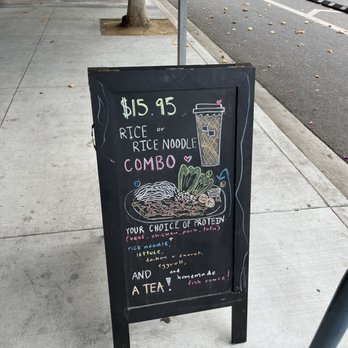 $15.95
RICE or
RICE NOODLE
COMBO
YOUR CHOICE OF PROTEIN
(beef, chicken, pork, tofu)
+
rice noodle,
lettuce,
daikon + carrot,
eggroll,
and homemade
fish sauce!
AND
A TEA!